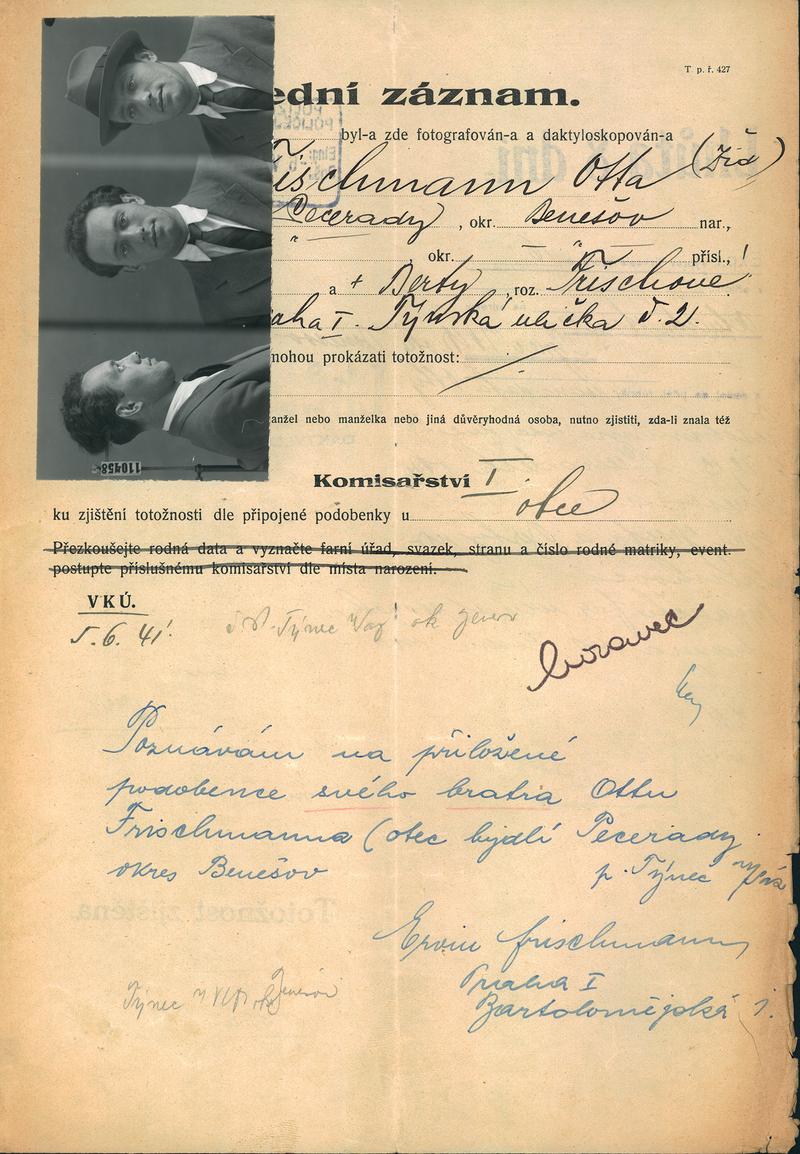 T p. ř. 427
ední záznam.
byl-a zde fotografován-a a daktyloskopován-a
ischmann Otta (Žid)
Pecerady, okr. Benešov nar.,
" , okr. — " — přísl., !
a + Berty, roz. Frischove
aha I. Týnská ulička č. 2.
mohou prokázati totožnost: /
anžel nebo manželka nebo jiná důvěryhodná osoba, nutno zjistiti, zda-li znala též
Komisařství I
ku zjištění totožnosti dle připojené podobenky u otce
Přezkoušejte rodná data a vyznačte farní úřad, svazek, stranu a číslo rodné matriky, event.
postupte příslušnému komisařství dle místa narození.
VKÚ.
5.6.41.
Týnec
Moravec
Poznávám na přiložené
podobence svého bratra Ottu
Frischmanna (otec bydlí Pecerady
okres Benešov p. Týnec
Ervin Frischmann
Praha I
Bartolomějská
Týnec
110458